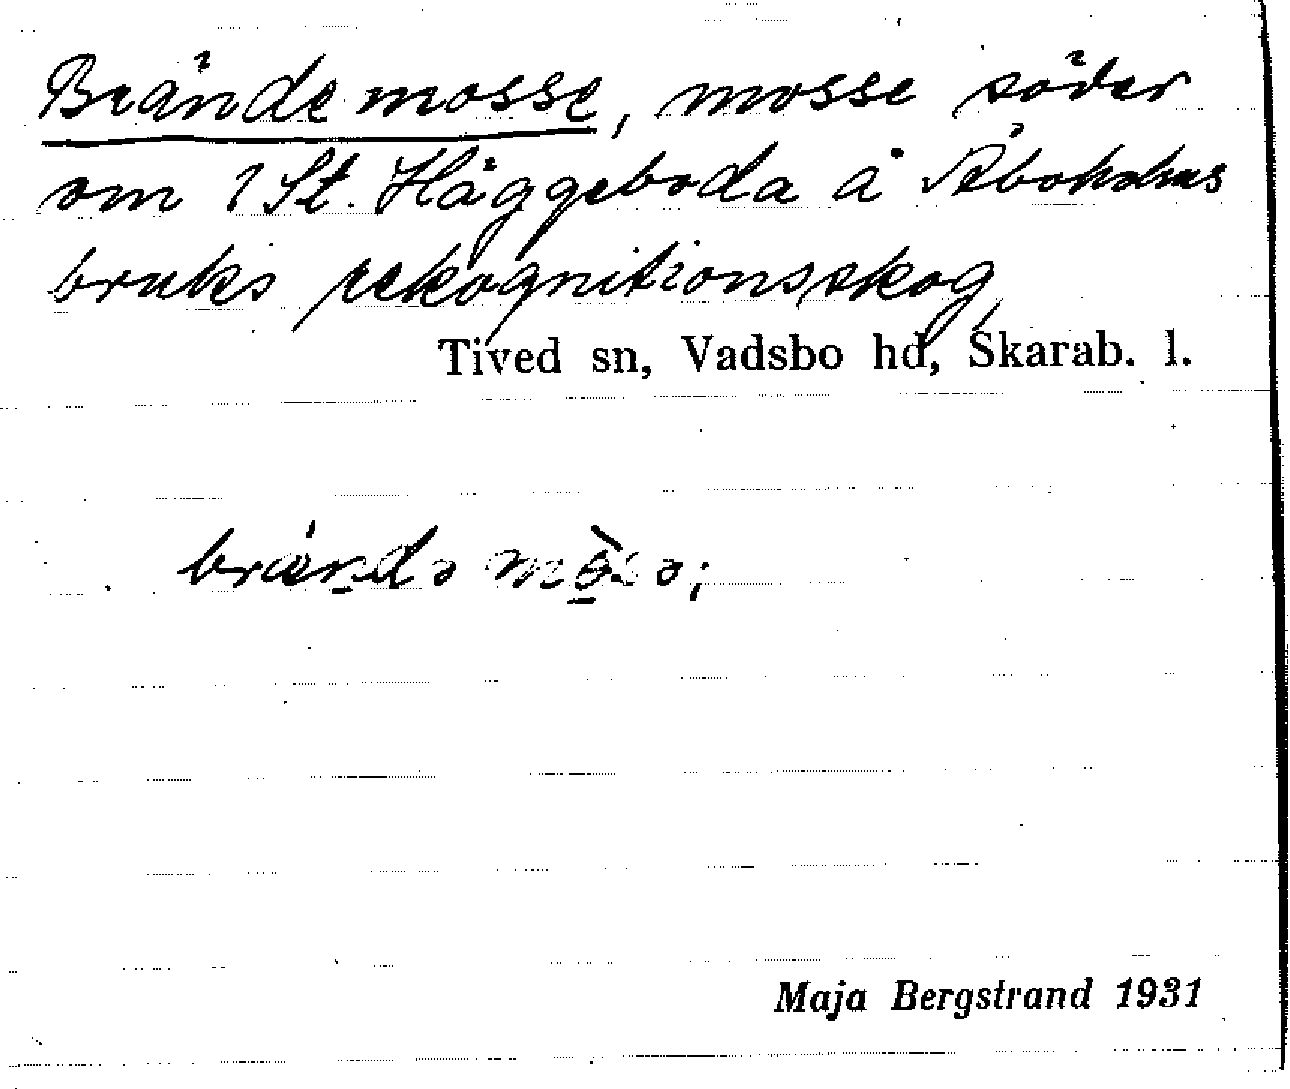 Brändemosse, mosse söder
om 1 St. Häggeboda å Åboholms
bruks rekognitionsskog
Tived sn, Vadsbo hd, Skarab. l.
brä́ndə mòsə;
Maja Bergstrand 1931